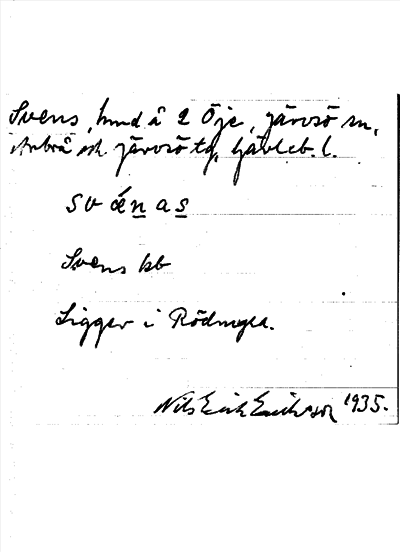 Svens, hmd å 2 Öje, Järvsö sn,
Arbrå och Järvsö tg, Gävleb. l.
sv én a s
Svens kb
Ligger i Rödmyra.
Nils Erik Eriksson 1935.